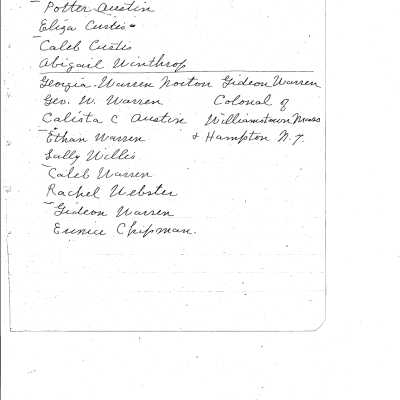 Potter Austin
Eliza Curtis
Caleb Curtis
Abigail Winthrop
Georgia Warren Norton Gideon Warren
Geo. W. Warren Colonal of
Calista C Austin Williamstown Mass
Ethan Warren & Hampton N.Y.
Sally Willis
Caleb Warren
Rachel Webster
Gideon Warren
Eunice Chipman.